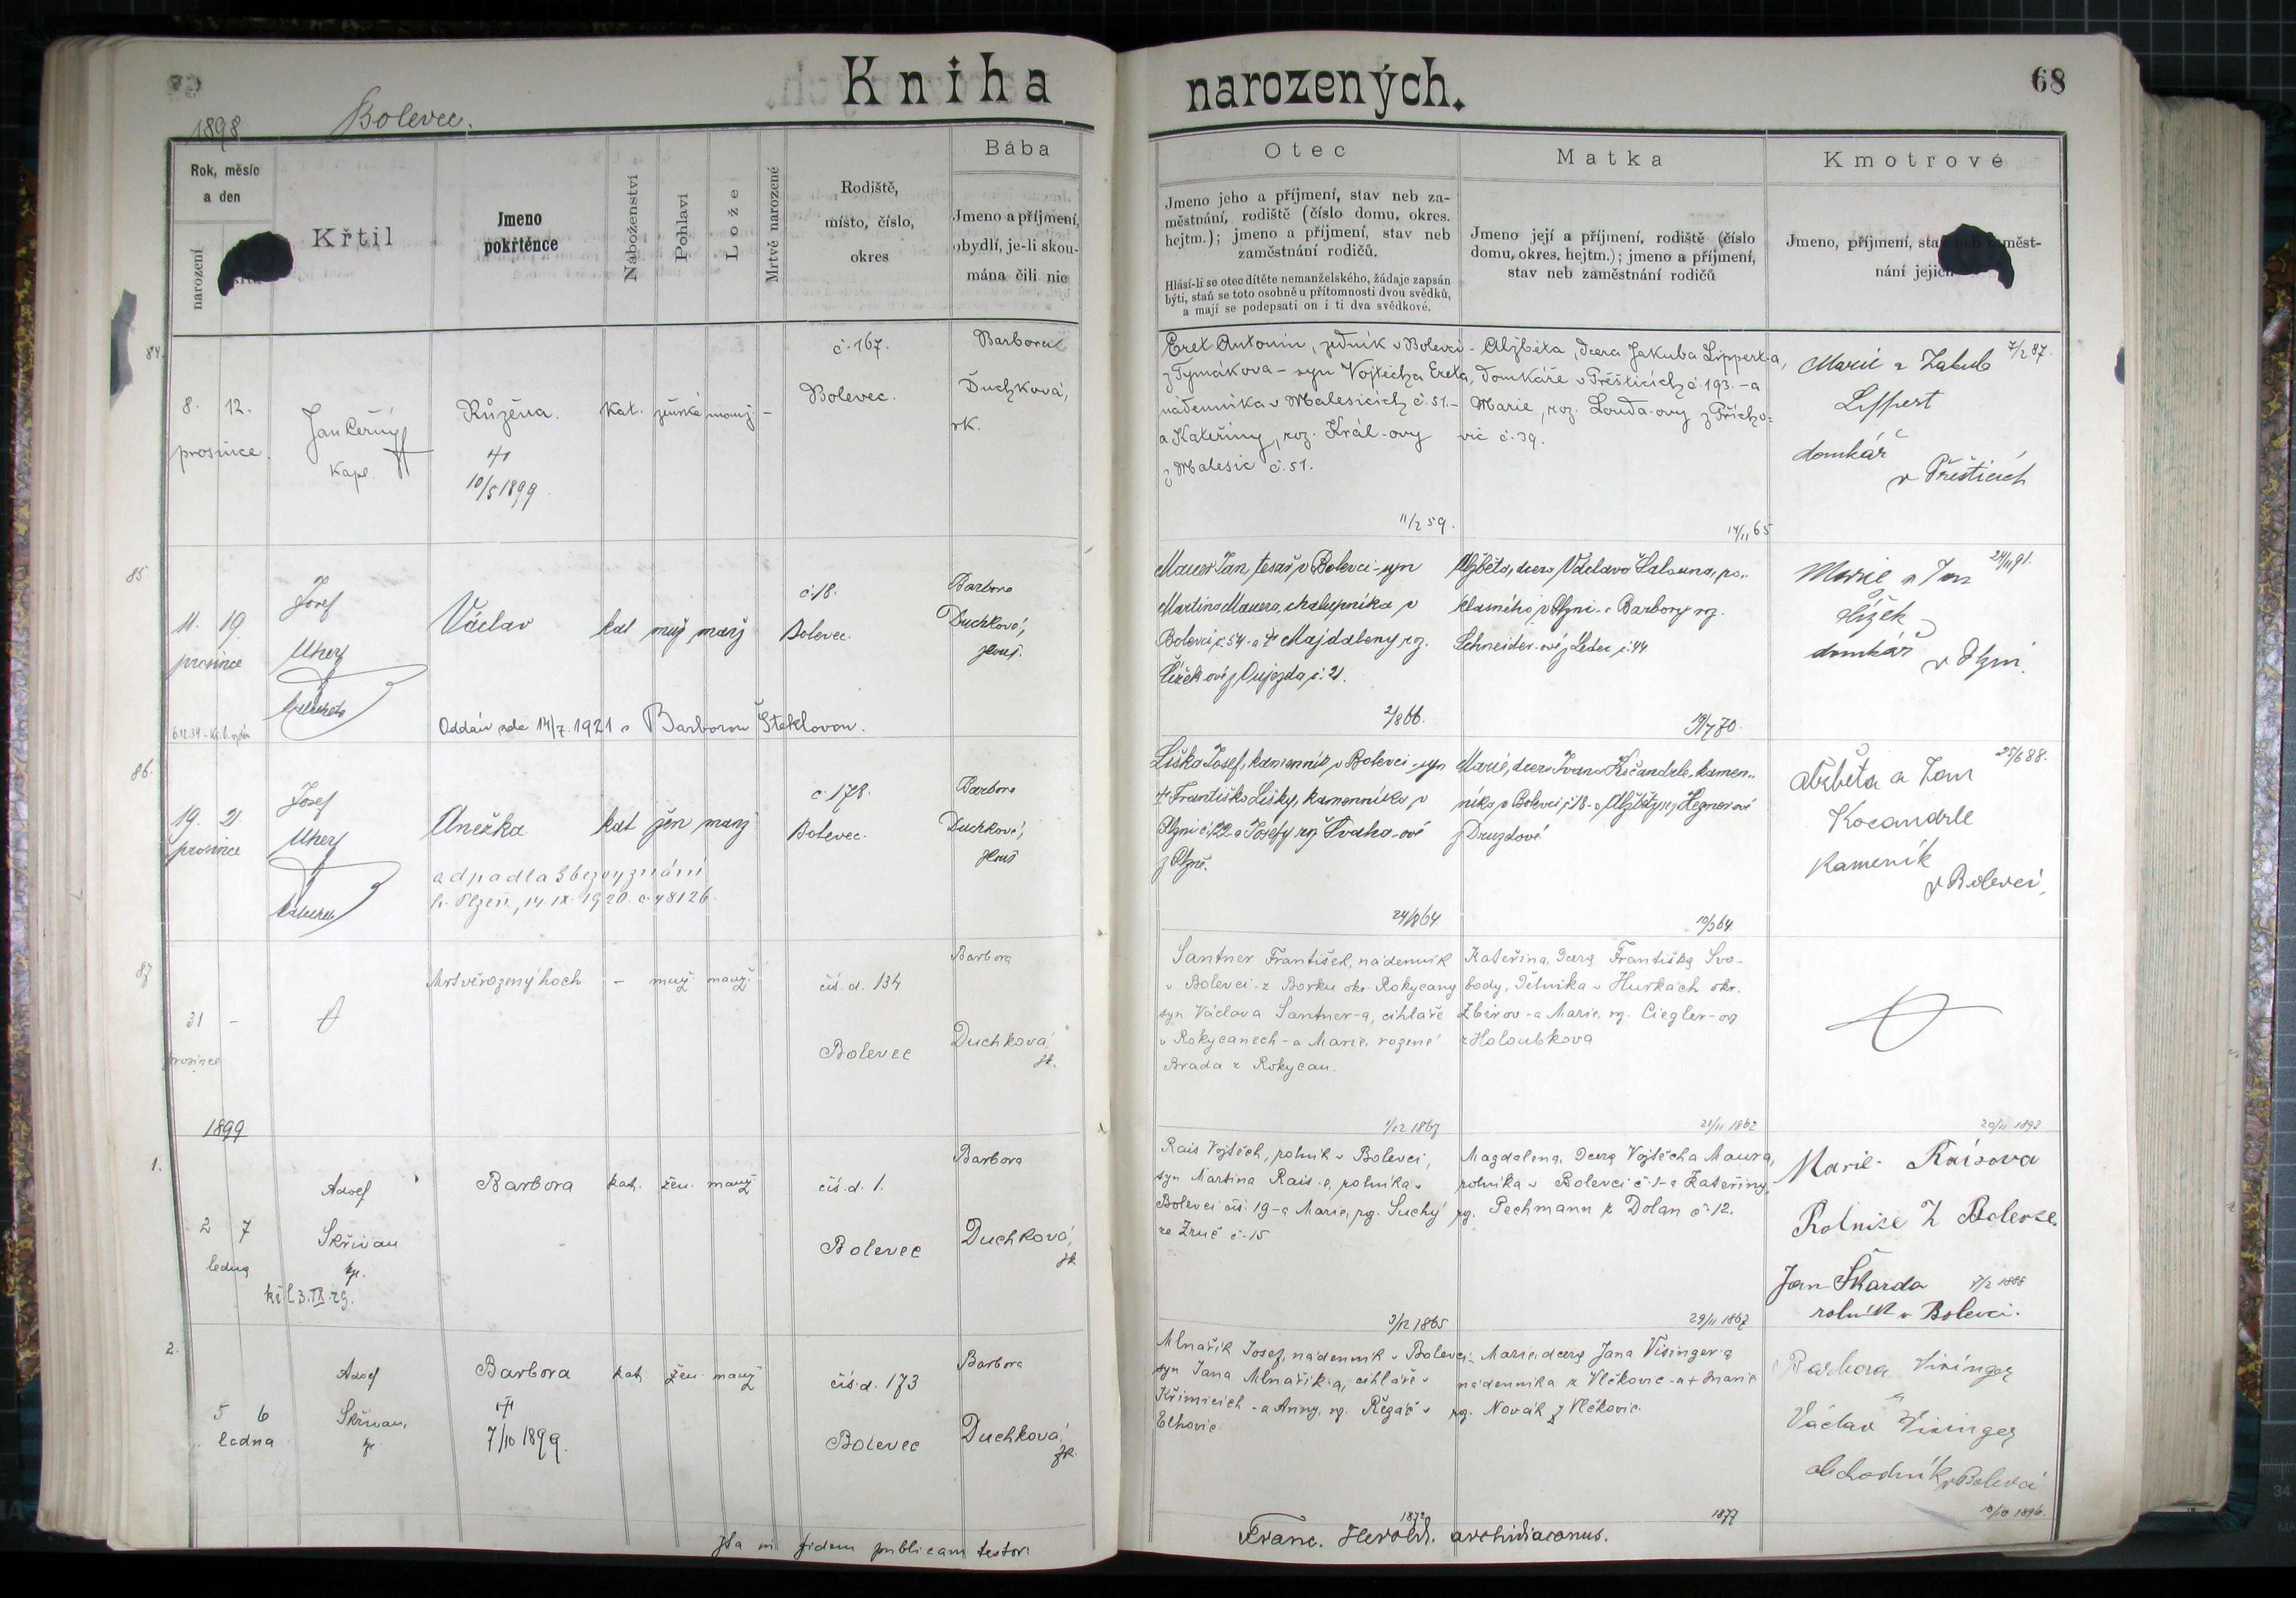 Kniha narozených.
68
1898
Bolevec.
Rok, měsíc
a den
narození
Křtil
Jmeno
pokřtěnce
Náboženství
Pohlaví
Lože
Mrtvě narozené
Rodiště,
místo, číslo,
okres
Bába
Jmeno a příjmení,
obydlí, je-li skou-
mána čili nic
Otec
Jmeno jeho a příjmení, stav neb za-
městnání, rodiště (číslo domu, okres.
hejtm.); jmeno a příjmení, stav neb
zaměstnání rodičů.
Hlásí-li se otec dítěte nemanželského, žádaje zapsán
býti, staň se toto osobně u přítomnosti dvou svědků,
a mají se podepsati on i ti dva svědkové.
Matka
Jmeno její a příjmení, rodiště (číslo
domu, okres. hejtm.); jmeno a příjmení,
stav neb zaměstnání rodičů
Kmotrové
Jmeno, příjmení, stav neb zaměst-
nání jejich
84.
8. 12.
prosince.
Jan Černý
kapl.
Růžena.
10/5 1899.
kat. ženské manž. -
č. 167.
Bolevec.
Barbora
Duchková,
zk.
Eret Antonín, zedník v Bolevci -
z Tymákova - syn Vojtěcha Ereta,
nádenníka v Malesicích č. 51. -
a Kateřiny, roz. Král-ovy
z Malesic č. 51.
11/2 59.
Alžběta, dcera Jakuba Lippert-a,
domkáře v Přešticích č. 193. - a
Marie, roz. Louda-ovy z Přícho-
vic č. 39.
14/11 65
Marie a Jakub 7/2 87.
Lippert
domkář
v Přešticích
85
11. 19.
prosince
Josef
Uher
Václav
kat muž manž
č 18.
Bolevec.
Barbora
Duchková,
zkouš.
Oddán zde 14/7. 1921 s Barborou Šteklovou.
Mauer Jan, tesař v Bolevci - syn
Martina Mauera, chalupníka v
Bolevci č. 54 - a † Majdaleny roz.
Čížek-ové z Oujezda č. 21.
2/8 66.
Alžběta, dcera Václava Šalouna, po-
klasného v Plzni - a Barbory roz.
Schneider-ové z Letec č. 44
19/7 70.
Marie a Jan 24/11 91.
Čížek
domkář v Plzni.
86.
19. 21.
prosince
Josef
Uher
Anežka
kat žen manž
č. 178.
Bolevec.
Barbora
Duchková,
zkouš
odpadla k bezvyznání
h. Plzeň, 14. IX. 1920. č. 48126.
Liška Josef, kamenník v Bolevci - syn
† Františka Lišky, kamenníka v
Plzni č. 122 a Josefy roz Svaha-ové
z Plzně.
24/8 64.
Marie, dcera Ivana Kočandrle, kamen-
níka v Bolevci č 18 - a Alžběty roz Hegnerové
z Druzdové
10/3 64.
Alžběta a Jan 25/6 88.
Kocandrle
Kameník
v Bolevci,
87
31 -
prosince
Mrtvěrozený hoch - muž. manž.
čís. d. 134
Bolevec
Barbora
Duchková,
zk.
Santner František, nádenník
v Bolevci - z Borku okr. Rokycany
syn Václava Santner-a, cihláře
v Rokycanech - a Marie, rozené
Brada z Rokycan.
1/12 1867
Kateřina, dcera Františka Svo-
body, dělníka v Hurkách okr.
Zbirov - a Marie, rz. Ciegler-ov
z Holoubkova
21/11 1862
20/11 1893
1899
1.
2 7
ledna
Adolf
Skřivan
kp.
Barbora
kat. žen. manž
čís. d. 1.
Bolevec
Barbora
Duchková,
zk
kř. l. 3. IX. 29.
Rais Vojtěch, rolník v Bolevci,
syn Martina Rais-e, rolníka v
Bolevci čís. 19 - a Marie, rz. Suchý
ze Zruč č. 15
3/12 1865
Magdalena, dcera Vojtěcha Maura,
rolníka v Bolevci č. 1 - a Kateřiny,
rz. Pechmann z Dolan č. 12.
29/11 1867
Marie Raisova
Rolnice z Bolevce.
Jan Škarda 7/2 1888
rolník v Bolevci.
2.
5 6
ledna
Adolf
Skřivan,
kp.
Barbora
7/10 1899.
kat. žen. manž
čís. d. 173
Bolevec
Barbora
Duchková,
zk.
Mlnařík Josef, nádenník v Bolevci,
syn Jana Mlnařík-a, cihláře v
Křimicích - a Anny, rz. Řezáč z
Elhovic.
1872
Marie, dcera Jana Visinger-a
nádenníka z Vlčkovic - a † Marie
rz. Novák z Vlčkovic.
1877
Barbora Visinger
Václav Visinger
obchodník v Bolevci
10/10 1896.
Ita in fidem publicam testor:
Franc. Herold, archidiaconus.